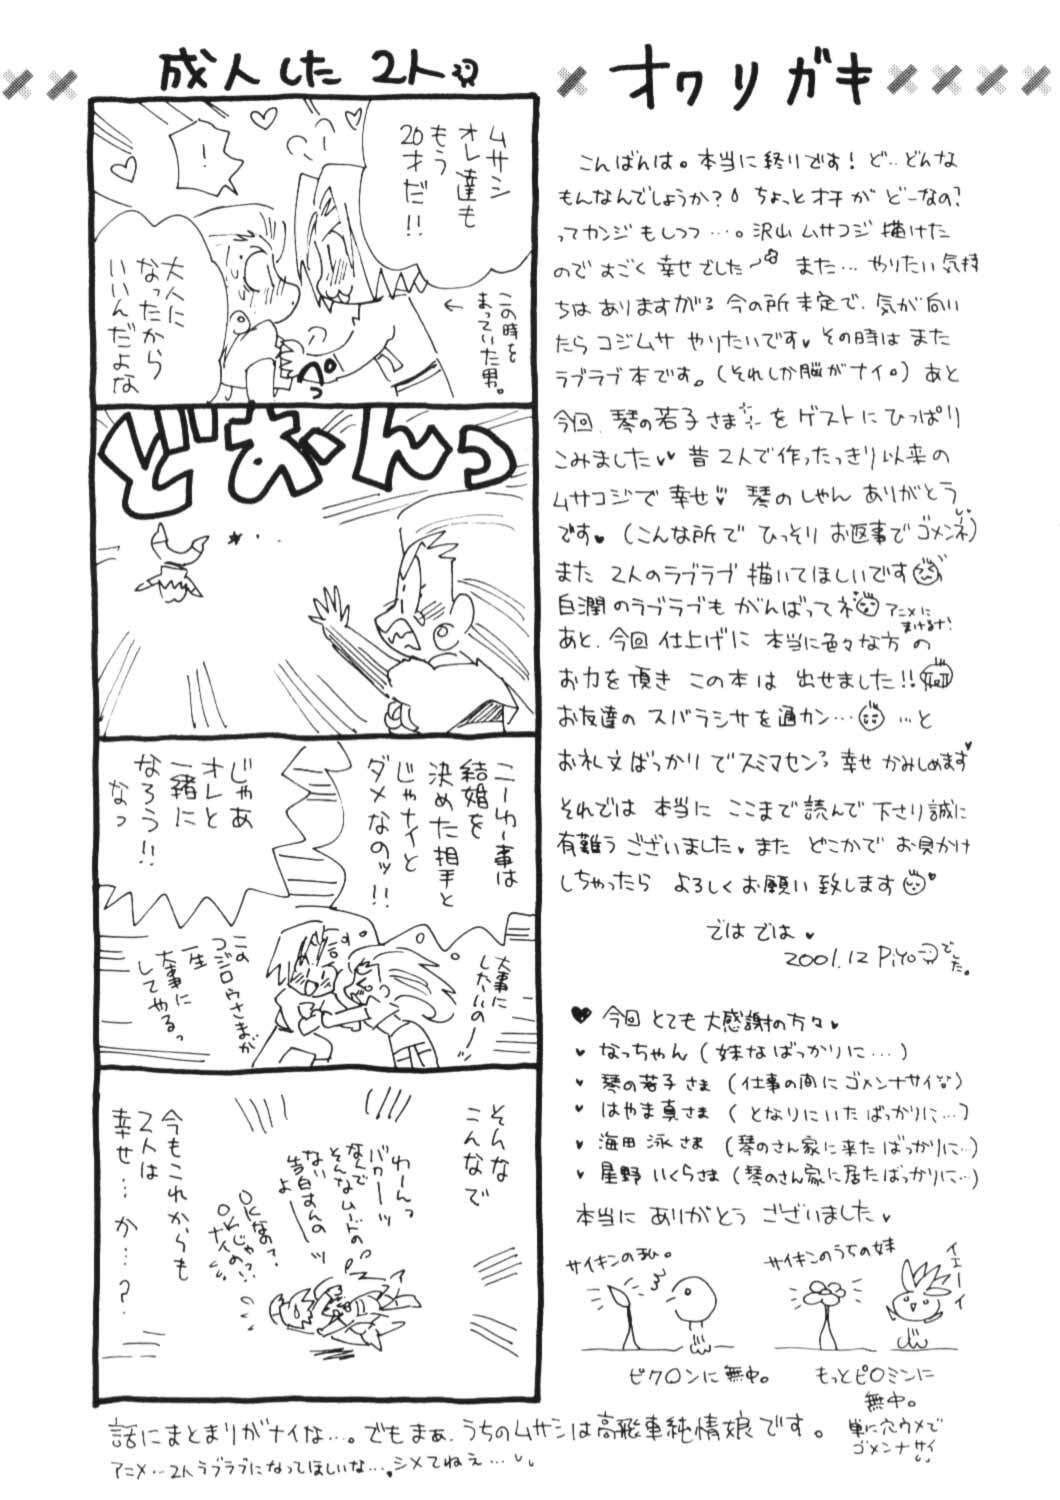 成人した2人
ムサシ
オレ達も
もう
20才だ!!
!
この時を
まっていた男。
←
大人に
なったから
いいんだよな
ぺっ
どおーんっ
こーゆー事は
結婚を
決めた相手と
じゃナイと
ダメなのッ!!
じゃあ
オレと
一緒に
なろう!!
なっ
大事に
したいのー
この
コジロウさまが
一生
大事に
してやるっ
そんな
こんなで
わーんっ
バカーッ
なんで
そんなムードの
ない
告白すんの
よーッ
OKなの?
OKじゃ
ナイの!?
今もこれからも
2人は
幸せ…か…?
話にまとまりがナイな…。でもまぁ、うちのムサシは高飛車純情娘です。
アニメ…2人ラブラブになってほしいな…。シメてねぇ…
オワリガキ
こんばんは。本当に終りです! ど…どんな
もんなんでしょうか? ちょっとオチが どーなの?
ってカンジもしつつ…。沢山 ムサコジ 描けた
のですごく 幸せでした〜 また… やりたい 気持
ちは ありますがる 今の所 未定で、気が向い
たら コジムサ やりたいです♥ その時は また
ラブラブ本です。(それしか脳がナイ。) あと
今回、琴の若子さまを ゲストに ひっぱり
こみました♥♥ 昔 2人で 作ったっきり以来の
ムサコジで 幸せ♥ 琴の しゃん ありがとう
です♥ (こんな所で ひっそり お返事で ゴメンネ)
また 2人のラブラブ 描いて ほしいです
白潤のラブラブも がんばってネ アニメに
まけるな!
あと、今回 仕上げに 本当に色々な方の
お力を 頂き この本は 出せました!!
お友達の スバラシサを 通カン… …と
お礼文ばっかり で スミマセン 幸せ かみしめます♥
それでは 本当に ここまで 読んで 下さり 誠に
有難う ございました。また どこかで お見かけ
しちゃったら よろしく お願い 致します ♥
では では ♥
2001.12 Piyoでした。
♥ 今回 とても 大感謝の方々♥
♥ なっちゃん (妹なばっかりに…)
♥ 琴の若子さま (仕事の間に ゴメンナサイ)
♥ はやま真さま (となりにいた ばっかりに…)
♥ 海田 泳さま (琴のさん家に来た ばっかりに…)
♥ 星野 いくらさま (琴のさん家に居た ばっかりに…)
本当に ありがとう ございました♥
サイキンの私。
ピク〇ンに無中。
サイキンのうちの妹
イエーイ
もっとピ〇ミンに
無中。
単に穴ウメで
ゴメンナサイ